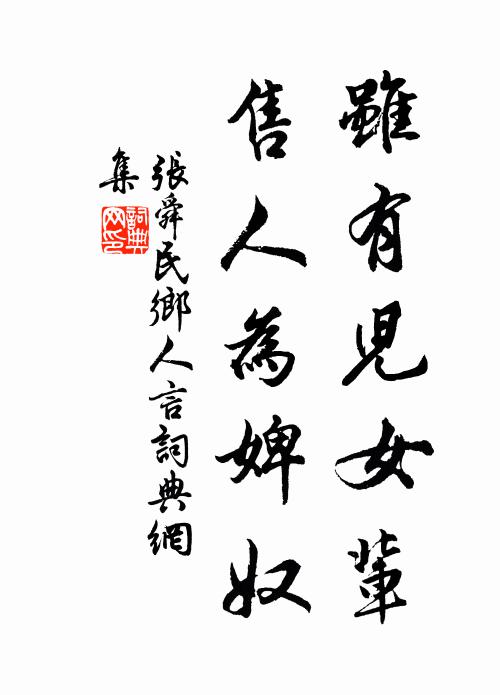 雖有兒女輩
售人為婢奴
張舜民鄉人言詞典網
集
詞典
网印